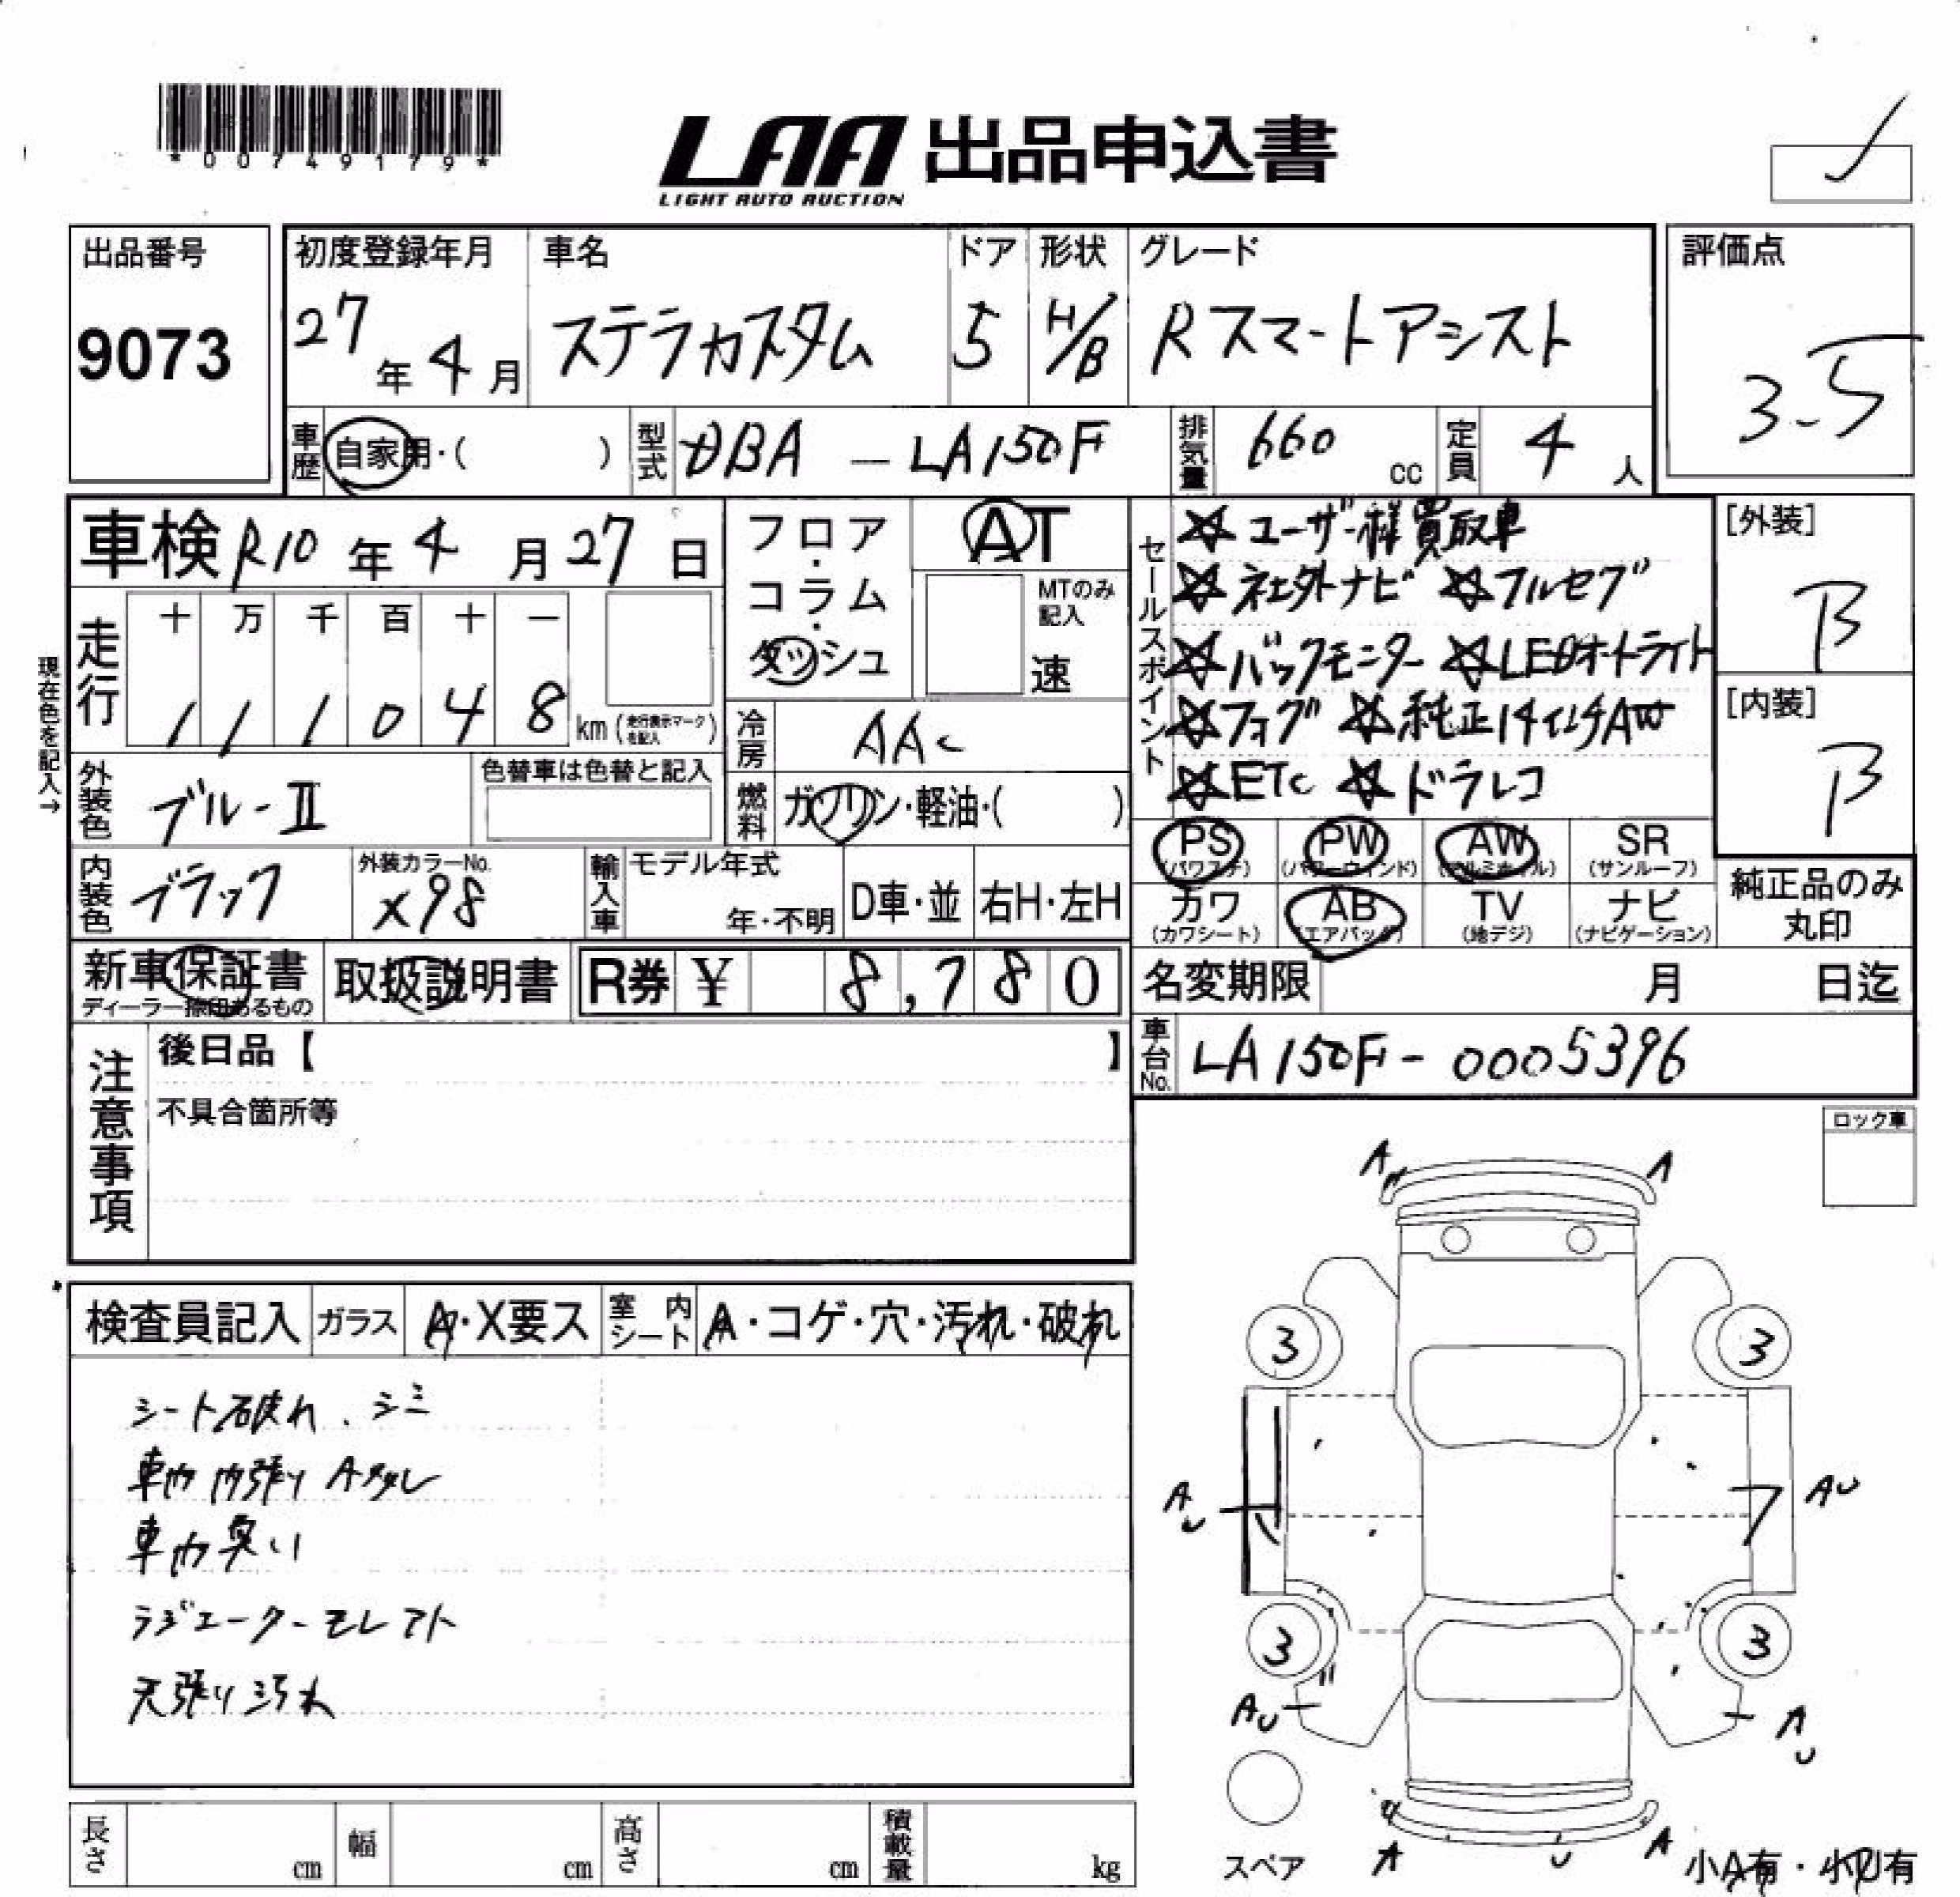 *00749179*
LAA 出品申込書
LIGHT AUTO AUCTION
出品番号
9073
初度登録年月
27年4月
車名
ステラカスタム
ドア
5
形状
H/B
グレード
Rスマートアシスト
評価点
3.5
車歴
自家用・( )
型式
DBA - LA150F
排気量
660 cc
定員
4 人
車検 R10年4月27日
走行
十 万 千 百 十 一
1 1 1 0 4 8 km (走行表示マークを記入)
現在色を記入→
フロア・コラム・ダッシュ
AT
MTのみ記入
速
冷房
AAC
燃料
ガソリン・軽油・( )
外装色
ブルーII
色替車は色替と記入
内装色
ブラック
外装カラーNo.
X98
輸入車
モデル年式
年・不明
D車・並
右H・左H
セールスポイント
☆ユーザー様買取車
☆社外ナビ ☆フルセグ
☆バックモニター ☆LEDオートライト
☆フォグ ☆純正14インチAW
☆ETC ☆ドラレコ
[外装]
B
[内装]
B
PS (パワステ)
PW (パワーウィンド)
AW (アルミホイル)
SR (サンルーフ)
カワ (カワシート)
AB (エアバッグ)
TV (地デジ)
ナビ (ナビゲーション)
純正品のみ丸印
新車保証書
ディーラー捺印あるもの
取扱説明書
R券 ¥ 8,780
名変期限 月 日迄
車台No.
LA150F-0005396
注意事項
後日品【 】
不具合箇所等
ロック車
検査員記入
ガラス
A・X要ス
室内シート
A・コゲ・穴・汚れ・破れ
シート破れ、シミ
車内内張りAタレ
車内臭い
ラジエーターモレアト
天張り汚れ
A A
3 3
AU AU
3 3
AU AU
A U A
スペア
小A有・小U有
長さ cm
幅 cm
高さ cm
積載量 kg